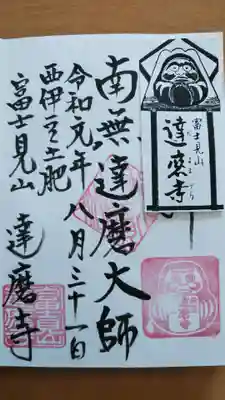 南無達磨大師
令和元年八月三十一日
西伊豆土肥
富士見山
達磨寺
富士見山
達磨寺